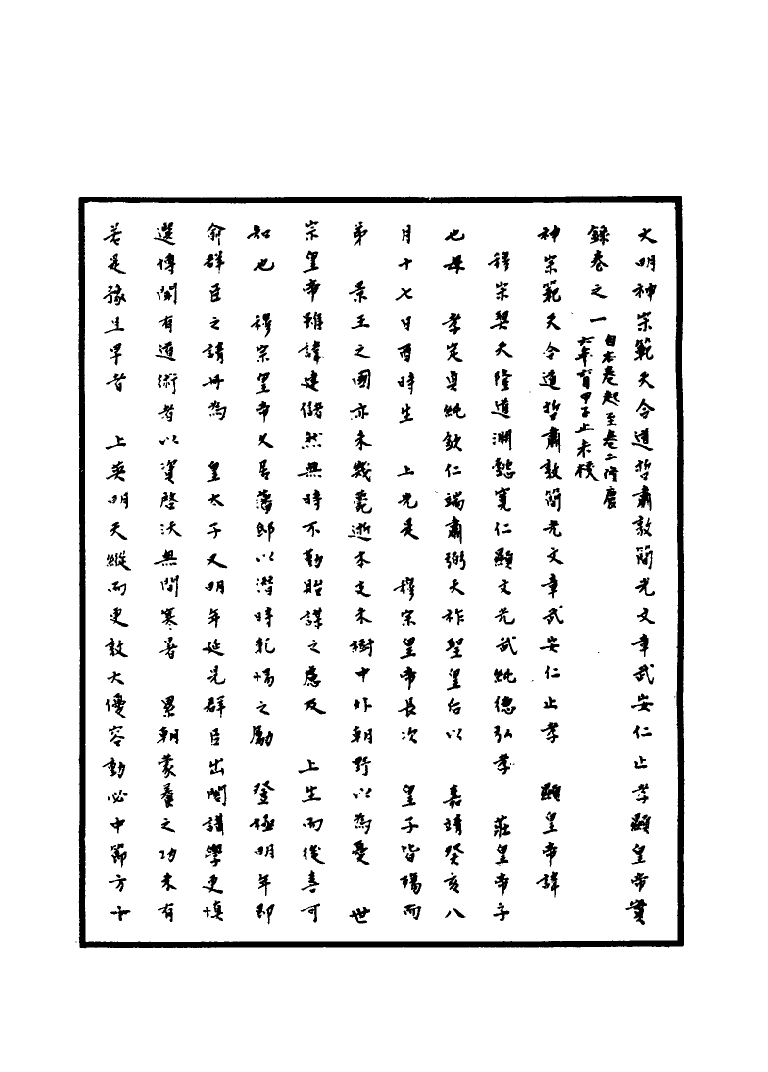 大明神宗範天合道哲肅敦簡光文章武安仁止孝顯皇帝實
錄卷之一
自本卷起至卷二隆慶
六年六月甲子止未校
神宗範天合道哲肅敦簡光文章武安仁止孝 顯皇帝諱
穆宗契天隆道淵懿寬仁顯文光武純德弘孝 莊皇帝子
也母 孝定貞純欽仁端肅弼天祚聖皇后以 嘉靖癸亥八
月十七日酉時生 上先是 穆宗皇帝長次 皇子皆殤而
弟 景王之國亦未幾薨逝本支未樹中外朝野以為憂 世
宗皇帝雖諱建儲然無時不勤貽謀之慮及 上生而後喜可
知也 穆宗皇帝久居藩邸以潛時乾惕之勵 登極明年即
俞群臣之請冊為 皇太子又明年延見群臣出閣講學更慎
選博聞有道術者以資啓沃無間寒暑 累朝蒙養之功未有
若是豫且早者 上英明天縱而更敦大優容動必中節方十